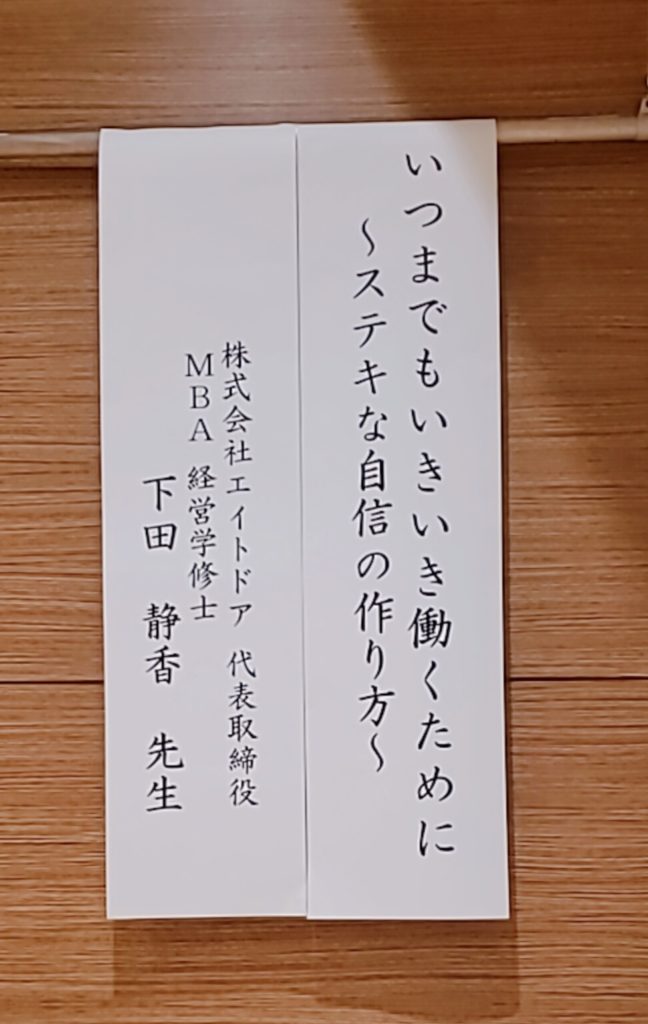 いつまでもいきいき働くために
～ステキな自信の作り方～
株式会社エイトドア 代表取締役
MBA 経営学修士
下田 静香 先生